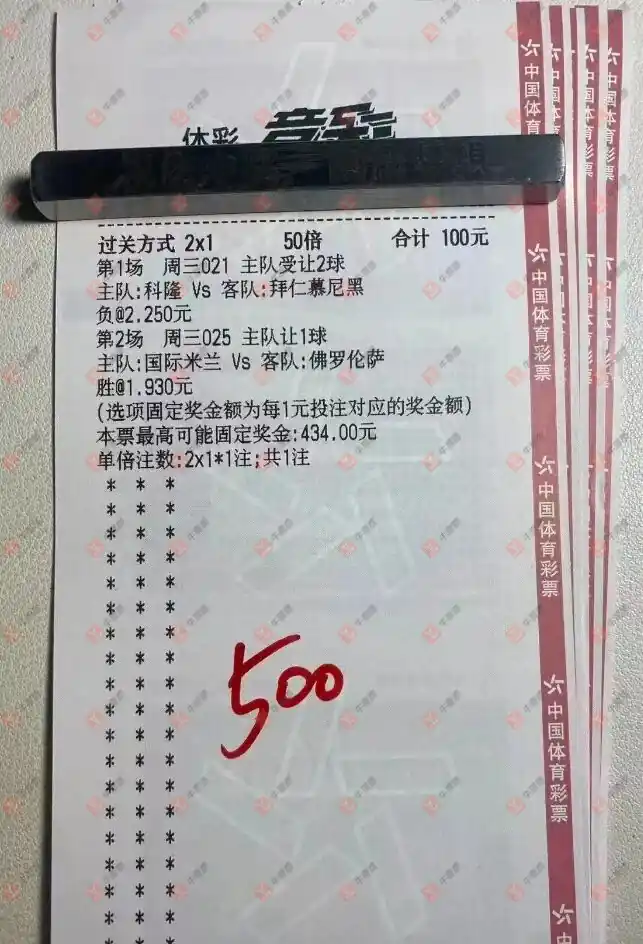 体彩 竞彩
过关方式 2x1 50倍 合计 100元
第1场 周三021 主队受让2球
主队:科隆 Vs 客队:拜仁慕尼黑
负@2.250元
第2场 周三025 主队让1球
主队:国际米兰 Vs 客队:佛罗伦萨
胜@1.930元
(选项固定奖金额为每1元投注对应的奖金额)
本票最高可能固定奖金:434.00元
单倍注数:2x1*1注;共1注
* * *
* * *
* * *
* * *
* * *
* * *
* * *
* * *
* * *
* * *
* * *
* * *
* * *
* * *
* * *
* * *
* * *
* * *
* * *
500
中国体育
中国体育彩票
中国体育彩票
中国体育彩票
中
中国体育彩票
中国体育彩票
中国体育彩票